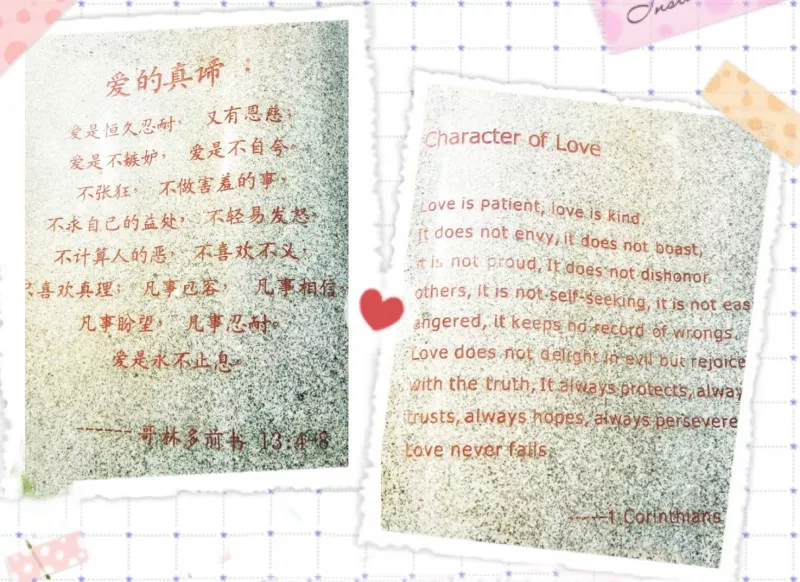 爱的真谛：
爱是恒久忍耐， 又有恩慈；
爱是不嫉妒， 爱是不自夸。
不张狂， 不做害羞的事，
不求自己的益处， 不轻易发怒。
不计算人的恶， 不喜欢不义，
只喜欢真理； 凡事包容， 凡事相信
凡事盼望， 凡事忍耐。
爱是永不止息。
------哥林多前书 13:4-8
Character of Love
Love is patient, love is kind.
It does not envy, it does not boast,
it is not proud, It does not dishonor
others, it is not self-seeking, it is not eas
angered, it keeps no record of wrongs.
Love does not delight in evil but rejoice
with the truth, It always protects, alway
trusts, always hopes, always persevere
Love never fails.
-----1 Corinthians